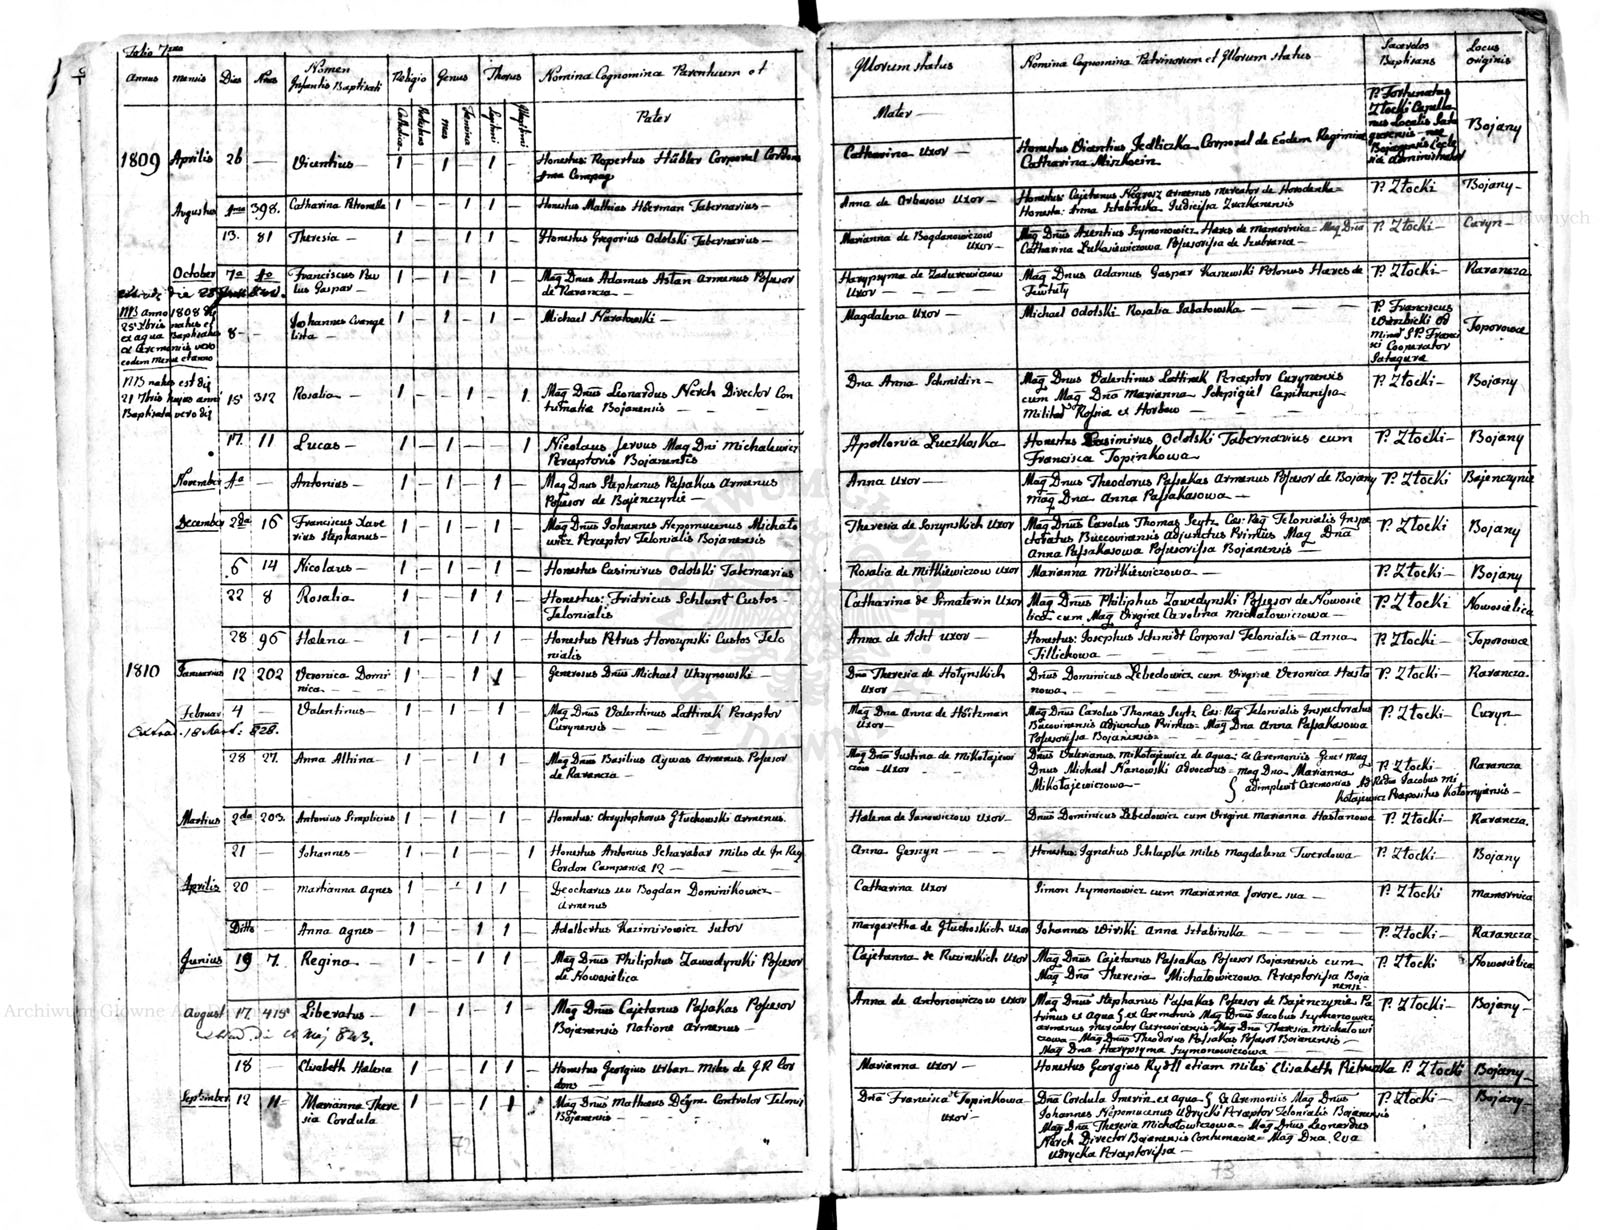 Folio 7mo
Annus Mensis Dies Nrus Nomen Infantis Baptisati Religio Genus Thorus Nomina Cognomina Parentuum et Illorum status Nomina Cognomina Patrinorum et Illorum status Sacerdos Baptisans Locus originis
Catholica mas Femina Legitimi Illegitimi Pater Mater
1809 Aprilis 26 — Vicentius — 1 — 1 — 1 — Honestus: Rupertus Hübler Corporal Cordons
Catharina Uxor —
Honestus Vicentius Jedliczka Corporal de Eodem Regimine
Catharina Minkoein
P. Fortunatus
Złocki Capella-
nus Localis Sada
gurensis nec
Bojanensis Eccle
siæ Administrator
Bojany
Augustus 1ma 398. Catharina Petronella 1 — — 1 1 — Honestus Mathias Höerman Tabernarius —
Anna de Orbasow Uxor —
Honestus: Cajetanus Negrusz Armenus mercator de Horodenka =
Honesta: Anna Sztabinska Judicissa Zuczkanensis
P. Złocki Bojany —
13. 81 Theresia — 1 — — 1 1 — Honestus Gregorius Odolski Tabernarius —
Marianna de Bogdanowiczow Uxor —
Mag Dnus Axentius Szymonowicz Hæres de Mamornica = Mag Dna
Catharina Lukasiewiczowa Possessorissa de Szubrana —
P. Złocki — Curyn —
October 7a 40 Franciscus Pau
lus Gaspar — 1 — 1 — 1 — Mag Dnus Adamus Astan Armenus Possesor
de Rarancza —
Harypsyma de Zadurowiczow
Uxor —
Mag Dnus Adamus Gaspar Karzewski Polonus Hæres de
Tewtuty
P. Złocki — Rarancza
NB Anno 1808 die
25 Xbris natus et
ex aqua Baptisatus
ex Ceremoniis vero
eodem Mense et anno
8 — Johannes Evange
lista — 1 — 1 — 1 — Michael Naratowski —
Magdalena Uxor —
Michael Odolski Rosalia Sabatowska —
P. Franciscus
Wierzbicki Od
Minor S.P. Franci
sci Cooperator
Sadagura
Toporowce
NB nata est die
21 7bris hujus anni
Baptisata vero die
15 312 Rosalia — 1 — — 1 — 1 Mag Dnus Leonardus Nerch Director Con
tumatiæ Bojanensis —
Dna Anna Schmidin —
Mag Dnus Valentinus Lattinek Perceptor Curynensis
cum Mag Dna Marianna — Schpigiel Capitanissa
Militar Rossia ex Horbow —
P. Złocki — Bojany
17. 11 Lucas — 1 — 1 — — 1 Nicolaus servus Mag Dni Michalewicz
Perceptoris Bojanensis
Apollonia Luczkaska
Honestus Casimirus Odolski Tabernarius cum
Francisca Topinkowa —
P. Złocki — Bojany
November 4a — Antonius — 1 — 1 — 1 Mag Dnus Stephanus Passakas Armenus
Possesor de Bajenczynie —
Anna Uxor —
Mag Dnus Theodorus Passakas Armenus Possesor de Bojany
Mag Dna Anna Passakasowa —
P. Złocki Bajenczynie
December 2da 16 Franciscus Xave
rius Stephanus — 1 — 1 — 1 — Mag Dnus Johannes Nepomucenus Michało
wicz Perceptor Telonialis Bojanensis
Theresia de Soszynskich Uxor
Mag Dnus Carolus Thomas Seytz Cæs: Reg Telonialis Inspe
ctoratus Buccovinensis Adjunctus Primus Mag Dna
Anna Passakasowa Possesorissa Bojanensis —
P. Złocki Bojany
6 14 Nicolaus — 1 — 1 — 1 — Honestus Casimirus Odolski Tabernarius
Rosalia de Mitkiewiczow Uxor Marianna Mitkiewiczowa —
P. Złocki — Bojany
22 8 Rosalia 1 — — 1 1 — Honestus: Fridricus Schlunt Custos —
Telonialis —
Catharina de Simaterin Uxor
Mag Dnus Philiphus Zawedynski Possesor de Nowosie
lica cum Mag Virgine Carolina Michałowiczowa —
P. Złocki Nowosielica
28 96 Hælena — 1 — — 1 1 — Honestus Petrus Horozynski Custos Telo
nialis
Anna de Acht Uxor —
Honestus: Josephus Schmidt Corporal Telonialis — Anna
Tillichowa —
P. Złocki — Toporowce
1810 Januarius 12 202 Veronica Domi
nica — 1 — — 1 1 Generosus Dnus Michael Ukrynowski —
Dna Theresia de Hotynskich
Uxor —
Dnus Dominicus Lebedowicz cum Virgine Veronica Hasta
nowa —
P. Złocki — Rarancza.
Februar 4 — Valentinus — 1 — 1 — 1 — Mag Dnus Valentinus Lattinek Perceptor
Curynensis —
Mag Dna Anna de Höitzman
Uxor —
Mag Dnus Carolus Thomas Seytz Cæs: Reg Telonialis Inspectoratus
Buccovinensis Adjunctus Primus = Mag Dna Anna Passakasowa
Possesorissa Bojanensis —
P. Złocki — Curyn —
28 27. Anna Albina — 1 — — 1 1 — Mag Dnus Basilius Aÿwas Armenus Possesor
de Rarancza —
Mag Dna Justina de Mikołajewi
czow — Uxor —
Dnus Valerianus Mikołajewicz de Aqua: ex Ceremoniis Mag
Dnus Michael Kanowski Advocatus = Mag Dna Marianna
Mikołajewiczowa —
adimplevit Ceremonias Jacobus Mi
kołajewicz Præpositus Kołomyiensis —
P. Złocki — Rarancza
Martius 2da 203. Antonius Simplicius 1 — 1 — 1 — Honestus: Chrystophorus Głuchowski Armenus.
Hælena de Janowiczow Uxor —
Dnus Dominicus Lebedowicz cum Virgine Marianna Hastanowa
P. Złocki — Rarancza.
21 — Johannes — 1 — 1 — — 1 Honestus Antonius Scharabar Miles de Reg
Cordon Campania 12 —
Anna Gerzyn —
Honestus: Ignatius Schlapka Miles Magdalena Twerdowa
P. Złocki — Bojany
Aprilis 20 — Martianna Agnes 1 — — 1 1 — Deocharus seu Bogdan Dominikowicz
Armenus
Catharina Uxor
Simon Szymonowicz cum Marianna Sorore sua —
P. Złocki — Mamornica
Ditto — Anna Agnes — 1 — — 1 1 — Adalbertus Kazimirowicz Sutor
Margaretha de Głuchoskich Uxor
Johannes Wirski Anna Sztabinska —
P. Złocki — Rarancza —
Junius 19 7. Regina — 1 — — 1 1 Mag Dnus Philiphus Zawadynski Possesor
de Nowosielica
Cajetanna de Ruzinskich Uxor
Mag Dnus Cajetanus Passakas Possesor Bojanensis cum
Mag Dna Theresia Michałowiczowa Perceptorissa Boja
nensi —
P. Złocki Nowosielica
August 17. 415 Liberatus — 1 — 1 — 1 Mag Dnus Cajetanus Passakas Possesor
Bojanensis Natione Armenus —
Anna de Antonowiczow Uxor
Mag Dnus Stephanus Passakas Possesor de Bajenczynie Pa
trinus ex Aqua § ex Ceremoniis Mag Dnus Jacobus Szymonowicz
Armenus Mercator Czernovicensis — Mag Dna Theresia Michałowi
czowa — Mag Dnus Theodorus Passakas Possesor Bojanensis —
Mag Dna Harypsyma Szymonowiczowa —
P. Złocki — Bojany —
18 — Elisabeth Hælena 1 — — 1 1 — Honestus Georgius Urban Miles de J.R. Cor
dons —
Marianna Uxor —
Honestus Georgius Rydtl etiam Miles Elisabeth Pietruszka P. Złocki Bojany —
September 12 11 Marianna There
sia Cordula 1 — — 1 1 Mag Dnus Matheus Deÿm Controlor Telonii
Bojanensis —
Dna Francisca Topinkowa
Uxor —
Dna Cordula Imerin ex aqua § Ex Ceremoniis Mag Dnus
Johannes Nepomucenus Udrycki Perceptor Telonialis Bojanensis
Mag Dna Theresia Michałowiczowa — Mag Dnus Leonardus
Nerch Director Bojanensis Contumacia = Mag Dna Eva
Udrycka Perceptorissa —
P. Złocki — Bojany —
72
73